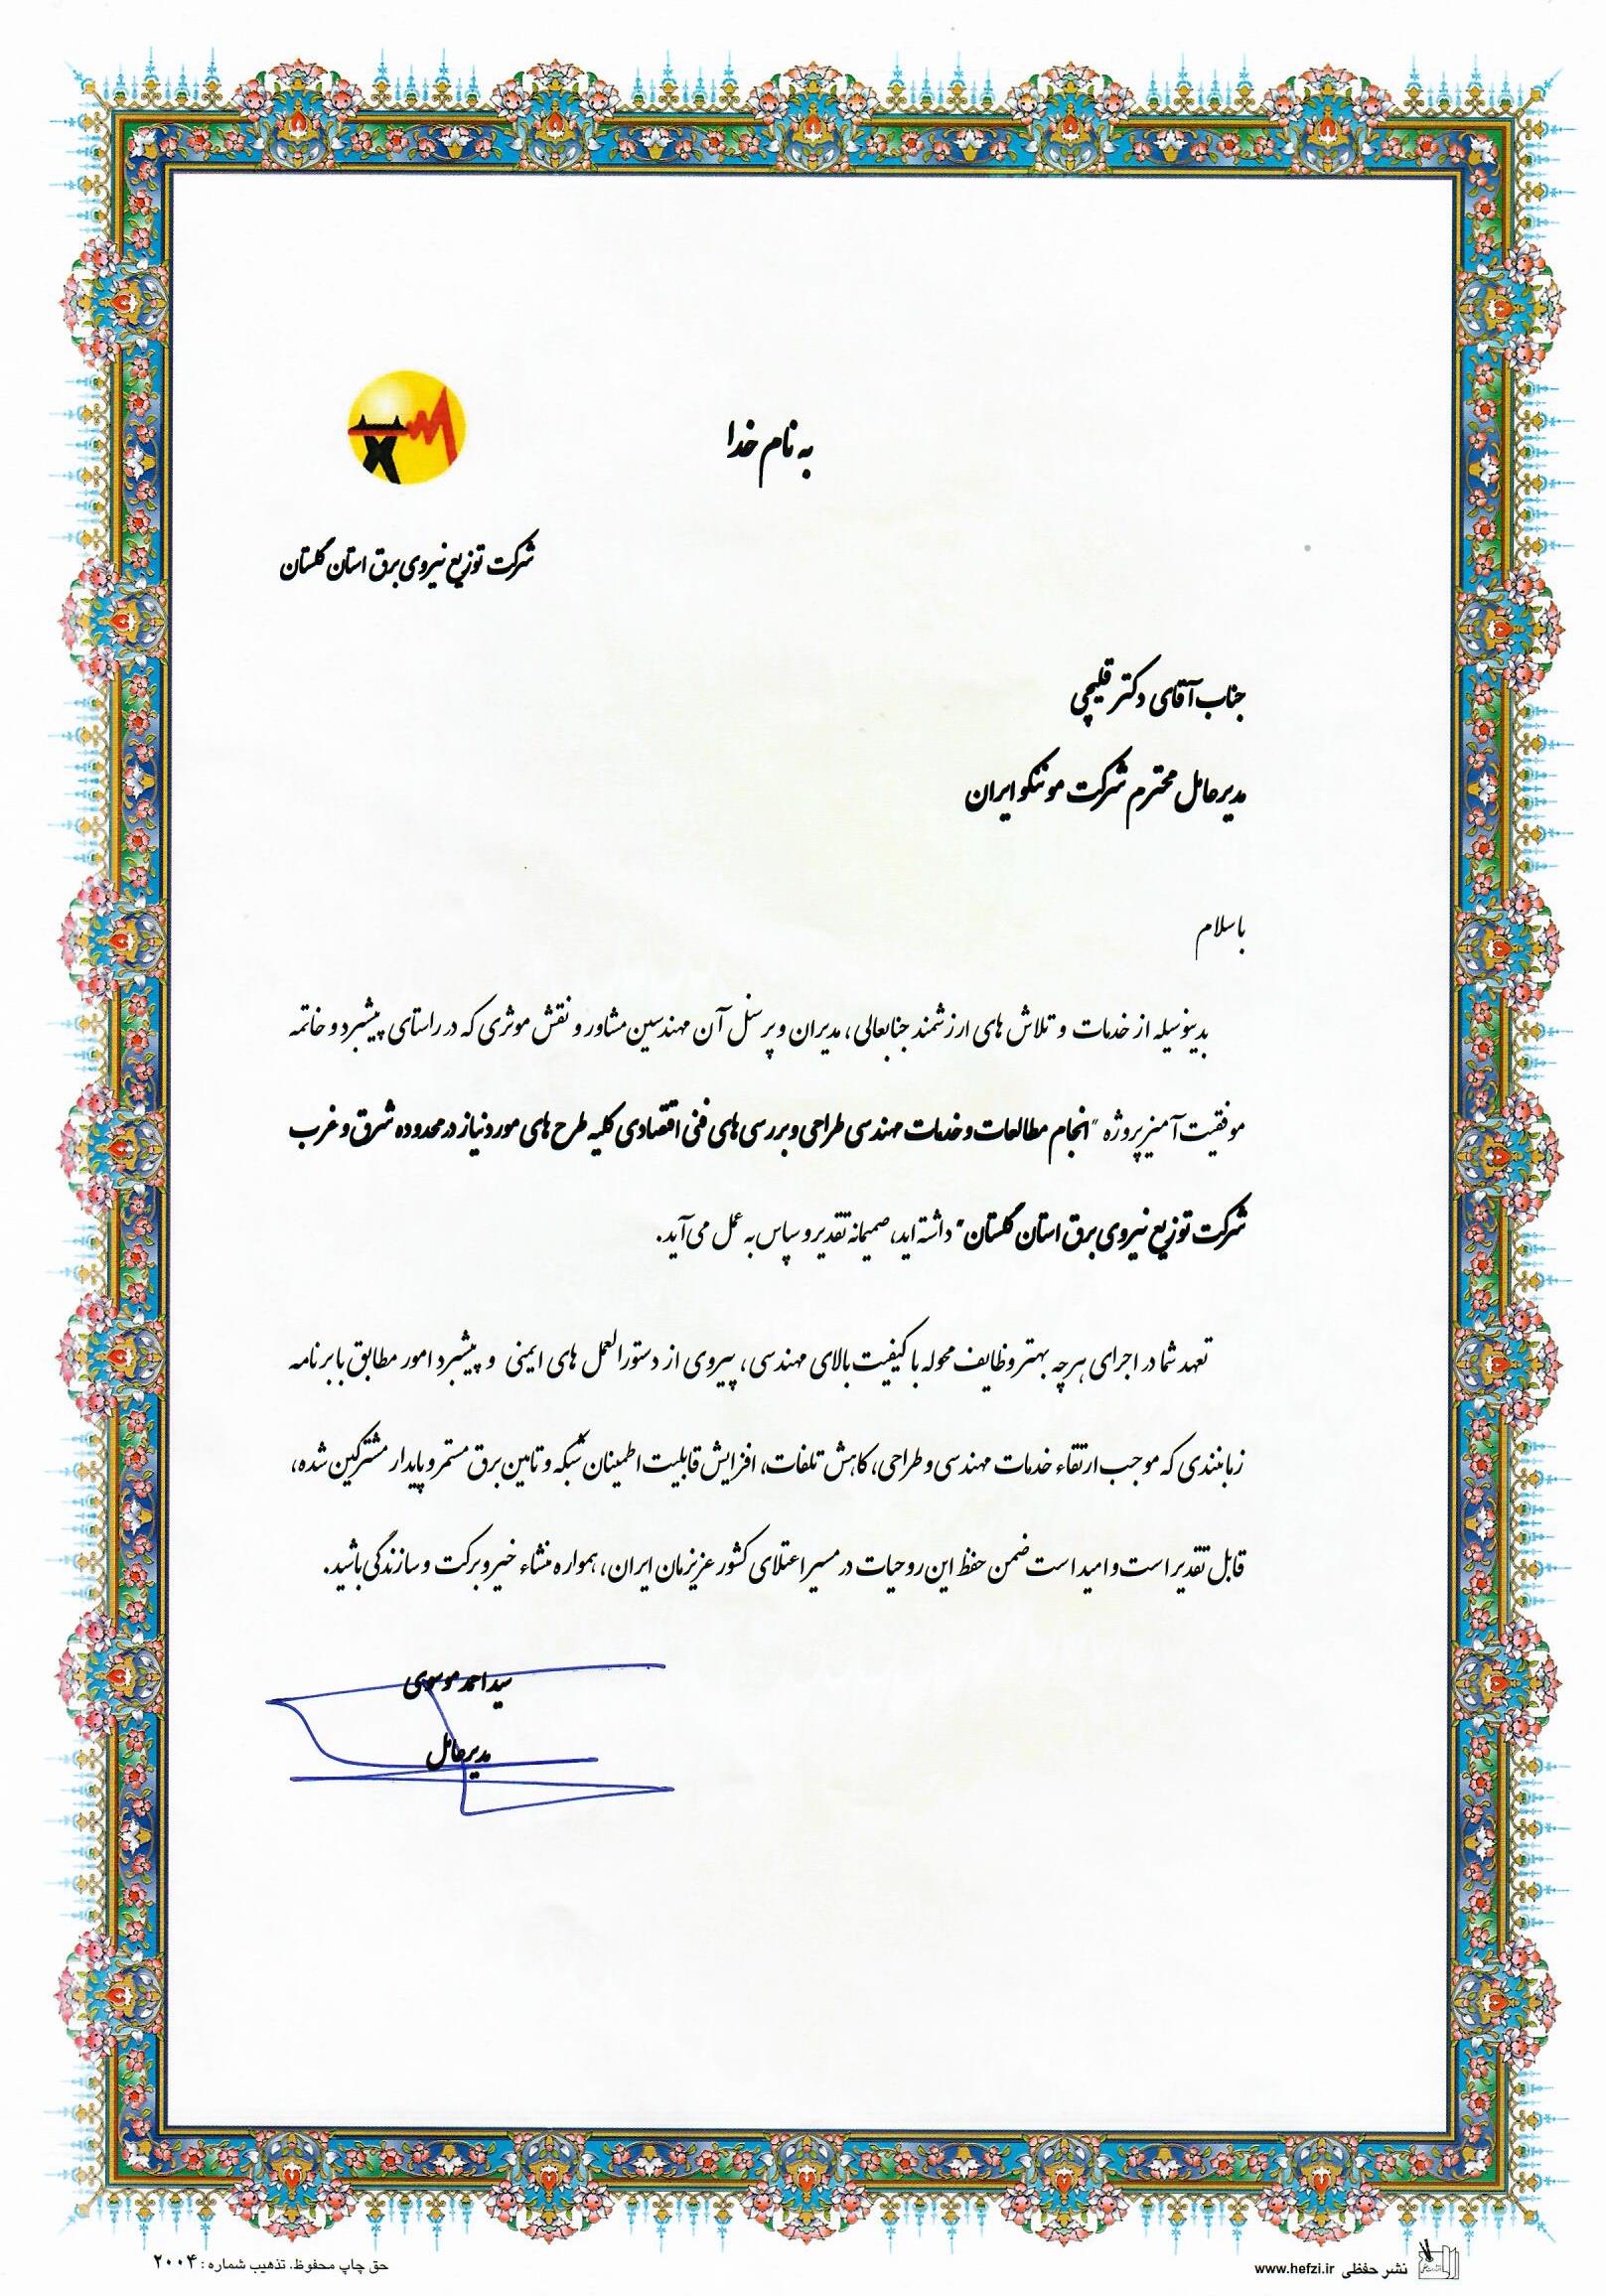 به نام خدا
شرکت توزیع نیروی برق استان گلستان
جناب آقای دکتر قلیچی
مدیرعامل محترم شرکت موننکو ایران
با سلام
بدینوسیله از خدمات و تلاش های ارزشمند جنابعالی، مدیران و پرسنل آن مهندسین مشاور و نقش موثری که در راستای پیشبرد و خاتمه
موفقیت آمیز پروژه "انجام مطالعات و خدمات مهندسی طراحی و بررسی های فنی اقتصادی کلیه طرح های مورد نیاز در محدوده شرق و غرب
شرکت توزیع نیروی برق استان گلستان" داشته اید، صمیمانه تقدیر و سپاس به عمل می آید.
تعهد شما در اجرای هرچه بهتر وظایف محوله با کیفیت بالای مهندسی، پیروی از دستورالعمل های ایمنی و پیشبرد امور مطابق با برنامه
زمانبندی که موجب ارتقاء خدمات مهندسی و طراحی، کاهش تلفات، افزایش قابلیت اطمینان شبکه و تامین برق مستمر و پایدار مشترکین شده،
قابل تقدیر است و امید است ضمن حفظ این روحیات در مسیر اعتلای کشور عزیزمان ایران، همواره منشاء خیر و برکت و سازندگی باشید.
سید احمد موسوی
مدیرعامل
نشر حفظی www.hefzi.ir
حق چاپ محفوظ. تذهیب شماره: ۲۰۰۴